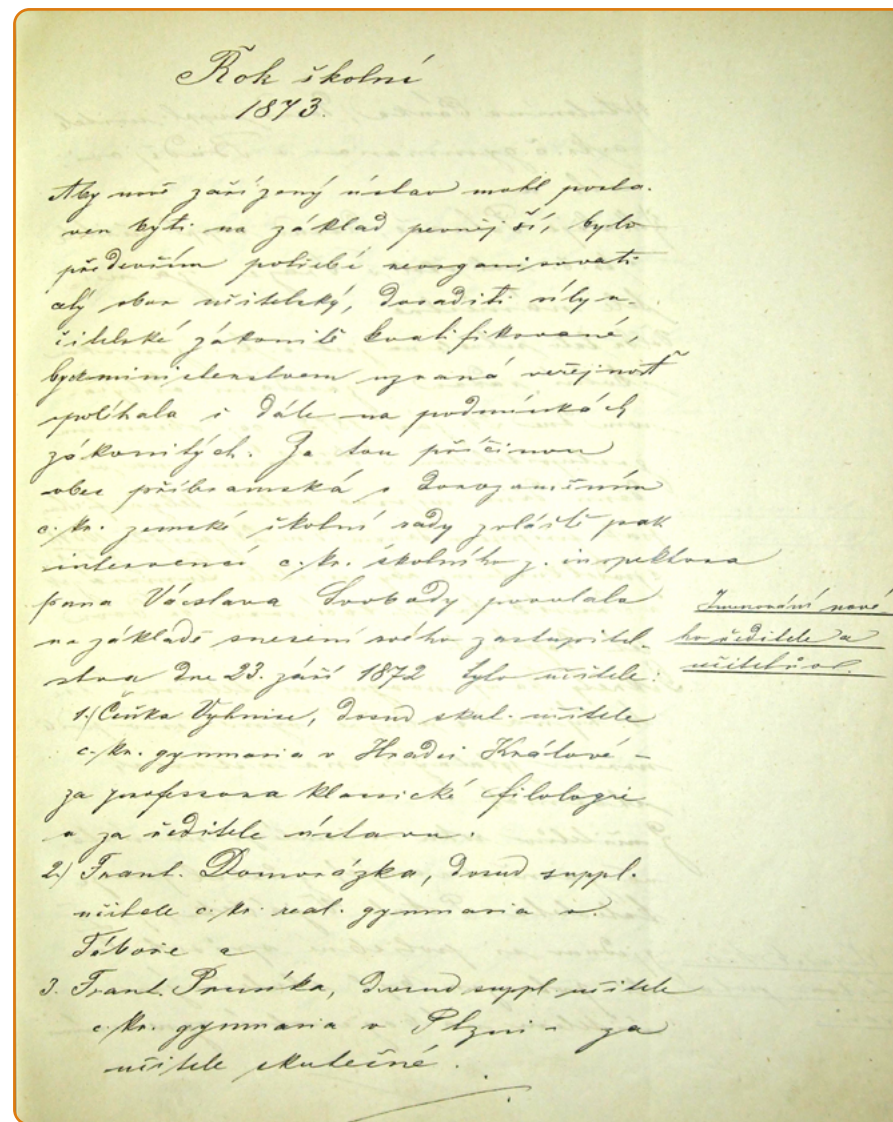 Rok školní
1873.
Aby nově zařízený ústav mohl posta-
ven býti na základ pevnější, bylo
především potřebí reorganisovati
celý sbor učitelský, dosaditi síly u-
čitelské zákonitě kvalifikované,
byť ministerstvem uznaná veřejnosť
spolíhala i dále na podmínkách
zákonitých. Za tou příčinou
obec příbramská s dorozuměním
c. kr. zemské školní rady zvláště pak
intervencí c. kr. školního z. inspektora
pana Václava Svobody povolala
na základě snesení svého zastupitel-
stva dne 23. září 1872 tyto učitele:
Jmenování nové-
ho ředitele a
učitelův.
1.) Čeňka Vyhnise, dosud skut. učitele
c. kr. gymnasia v Hradci Králové –
za professora klassické filologie
a za ředitele ústavu.
2.) Frant. Domorázka, dosud suppl.
učitele c. kr. real. gymnasia v
Táboře a
3. Frant. Prusíka, dosud suppl učitele
c. kr. gymnasia v Plzni – za
učitele skutečné.